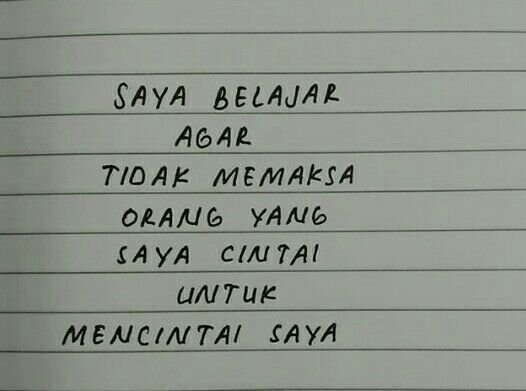 SAYA BELAJAR
AGAR
TIDAK MEMAKSA
ORANG YANG
SAYA CINTAI
UNTUK
MENCINTAI SAYA